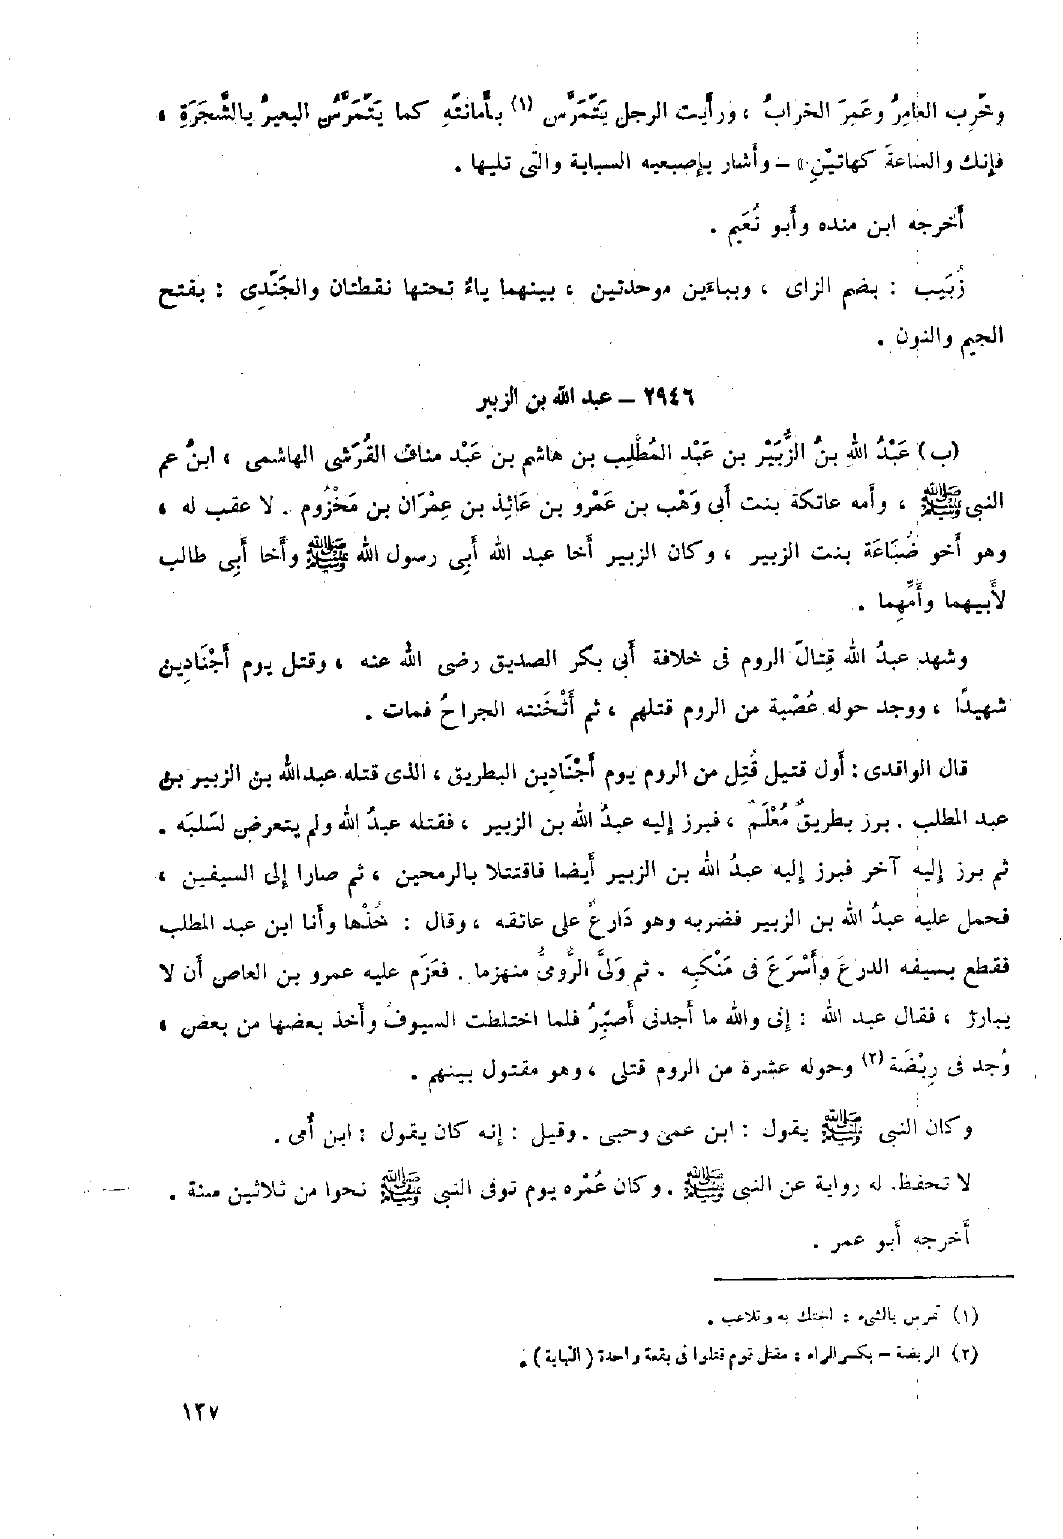 وخَرِب العامِرُ وعَمِرَ الخرابُ ، ورأَيت الرجل يَتَمَرَّس (١) بأَمانتهِ كما يَتَمَرَّسُ البعيرُ بالشَّجَرَةِ ،
فإِنك والساعةَ كهاتيْنِ» – وأَشار بإِصبعيه السبابة والتى تليها .
أَخرجه ابن منده وأَبو نُعَيم .
زُبَيب : بضم الزاى ، وبباءَين موحدتين ، بينهما ياءٌ تحتها نقطتان والجَنَدِى : بفتح
الجيم والنون .
٢٩٤٦ – عبد الله بن الزبير
(ب) عَبْدُ اللهِ بنُ الزُّبَيْرِ بن عَبْد المُطَّلِب بن هاشم بن عَبْد مناف القُرَشى الهاشمى ، ابنُ عم
النبى ﷺ ، وأمه عاتكة بنت أَبى وَهْب بن عَمْرو بن عَائِذ بن عِمْرَان بن مَخْزُوم . لا عقب له ،
وهو أَخو ضُبَاعَة بنت الزبير ، وكان الزبير أَخا عبد الله أَبى رسول الله ﷺ وأَخا أَبِى طالب
لأَبيهما وأُمِّهِما .
وشهد عبدُ الله قِتالَ الروم فى خلافة أَبى بكر الصديق رضى الله عنه ، وقتل يوم أَجْنَادِين
شهيدًا ، ووجد حوله عُصْبة من الروم قتلهم ، ثم أَثْخَنته الجراحُ فمات .
قال الواقدى : أَول قتيل قُتِل من الروم يوم أَجْنَادِين البطريق ، الذى قتله عبدالله بن الزبير بن
عبد المطلب . برز بطريقٌ مُعْلَمٌ ، فبرز إليه عبدُ الله بن الزبير ، فقتله عبدُ الله ولم يتعرض لسَلبَه .
ثم برز إِليه آخر فبرز إِليه عبدُ الله بن الزبير أَيضا فاقتتلا بالرمحين ، ثم صارا إِلى السيفين ،
فحمل عليه عبدُ الله بن الزبير فضربه وهو دَارِعٌ على عاتقه ، وقال : خُذْها وأَنا ابن عبد المطلب
فقطع بسيفه الدرعَ وأَسْرَعَ فى مَنْكبِه . ثم وَلىَّ الرُّومىُّ منهزما . فعَزَم عليه عمرو بن العاص أَن لا
يبارز ، فقال عبد الله : إِنى والله ما أَجدنى أَصبِرُ فلما اختلطت السيوفُ وأَخذ بعضها من بعض ،
وُجد فى رِبْضَة (٢) وحوله عشرة من الروم قتلى ، وهو مقتول بينهم .
وكان النبى ﷺ يقول : ابن عمى وحبى . وقيل : إنه كان يقول : ابن أُمى .
لا تحفظ له رواية عن النبى ﷺ . وكان عُمْره يوم توفى النبى ﷺ نحوا من ثلاثين سنة .
أَخرجه أَبو عمر .
(١) تمرس بالشىء : احتك به وتلاعب .
(٢) الربضة – بكسر الراء : مقتل قوم قتلوا فى بقعة واحدة (النهاية) .
١٣٧